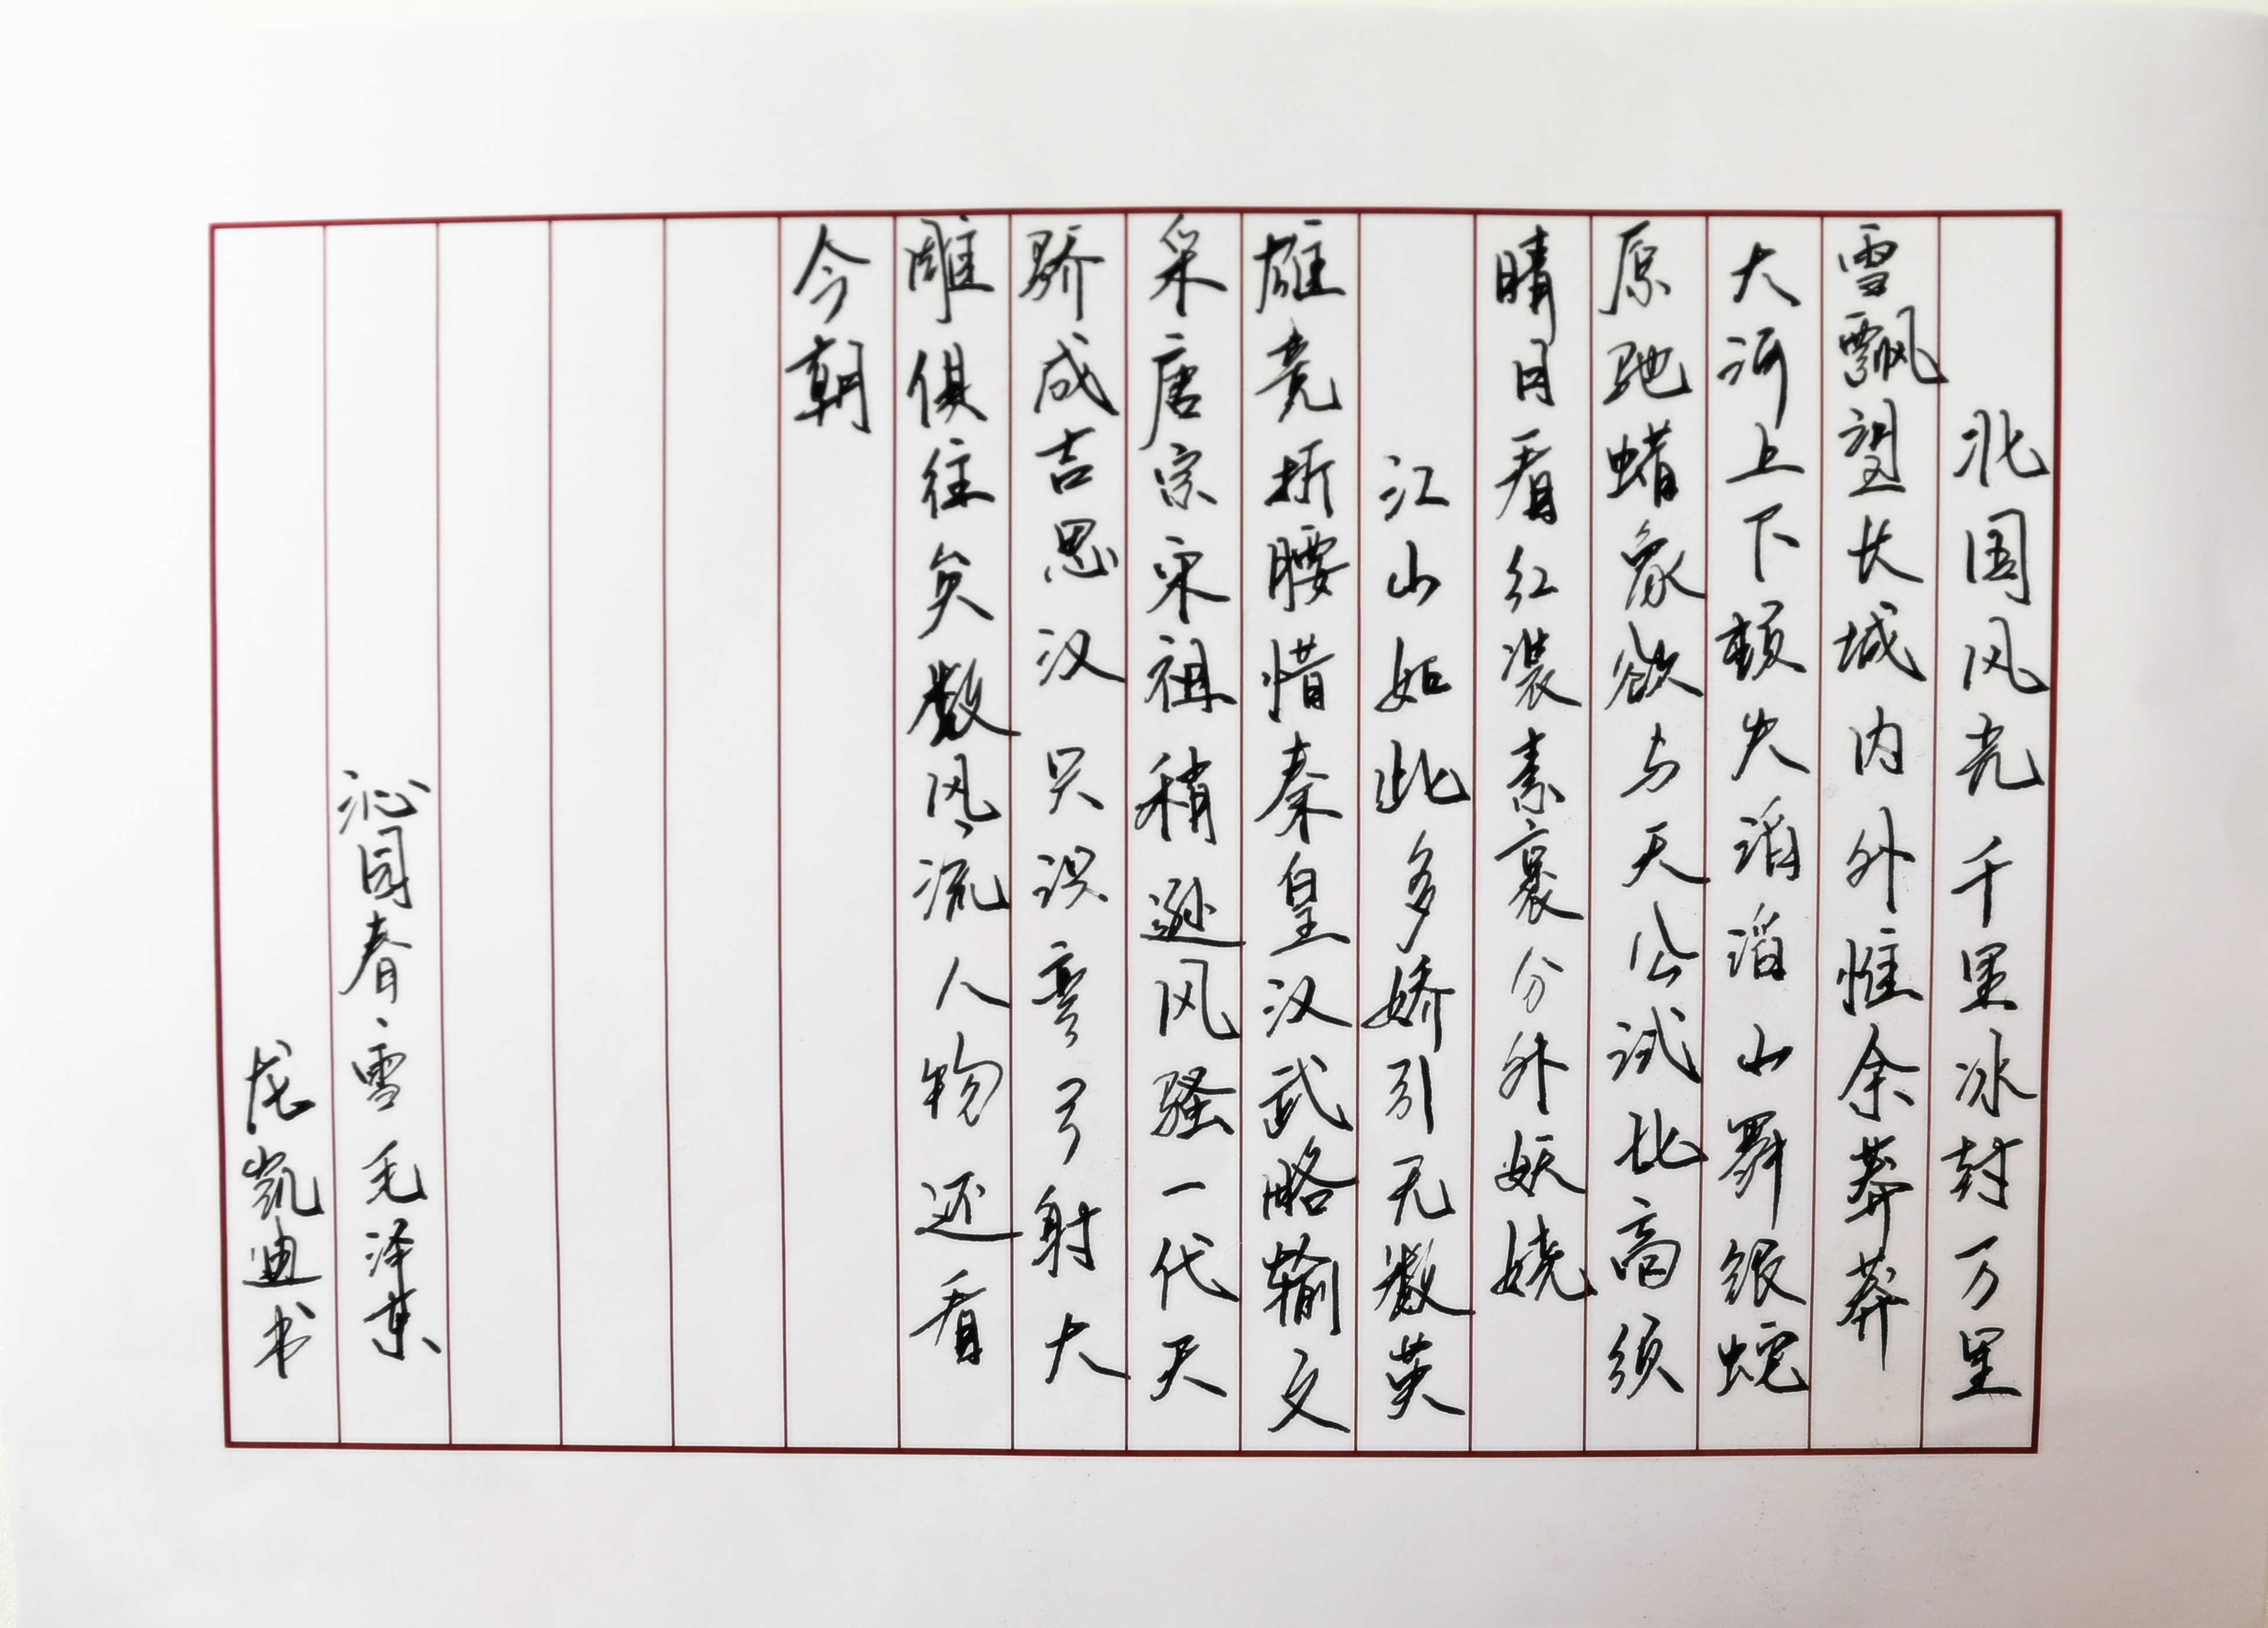 北国风光千里冰封万里
雪飘望长城内外惟余莽莽
大河上下顿失滔滔山舞银蛇
原驰蜡象欲与天公试比高须
晴日看红装素裹分外妖娆
江山如此多娇引无数英
雄竞折腰惜秦皇汉武略输文
采唐宗宋祖稍逊风骚一代天
骄成吉思汉只识弯弓射大
雕俱往矣数风流人物还看
今朝
沁园春·雪 毛泽东
凯迪书